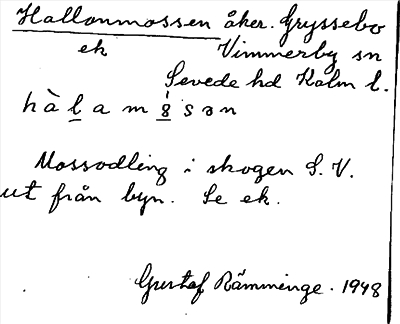 Hallonmossen åker. Gryssebo
ek Vimmerby sn
Sevede hd Kalm l.
hàlam8́sən
Mossodling i skogen S.V.
ut från byn. Se ek.
Gustaf Rämminge. 1948